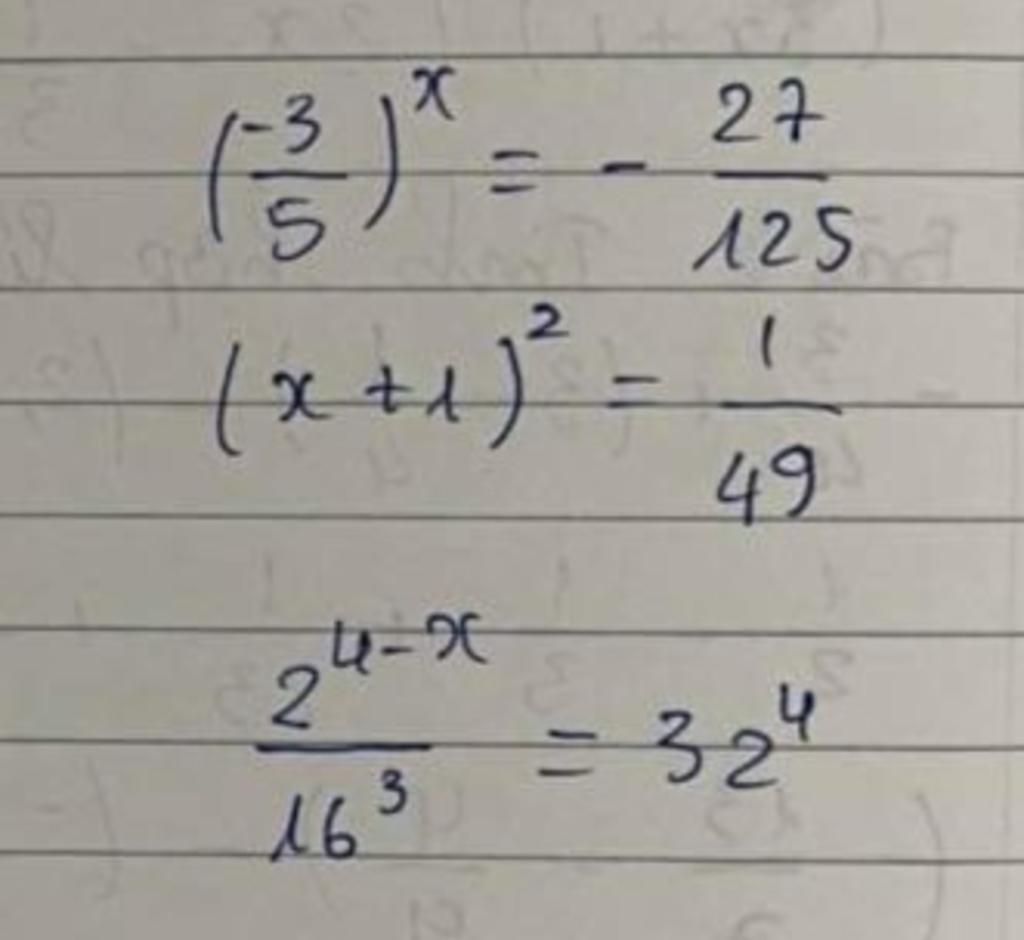 (-3/5)^x = - 27/125
(x + 1)^2 = 1/49
2^(4-x)/16^3 = 32^4